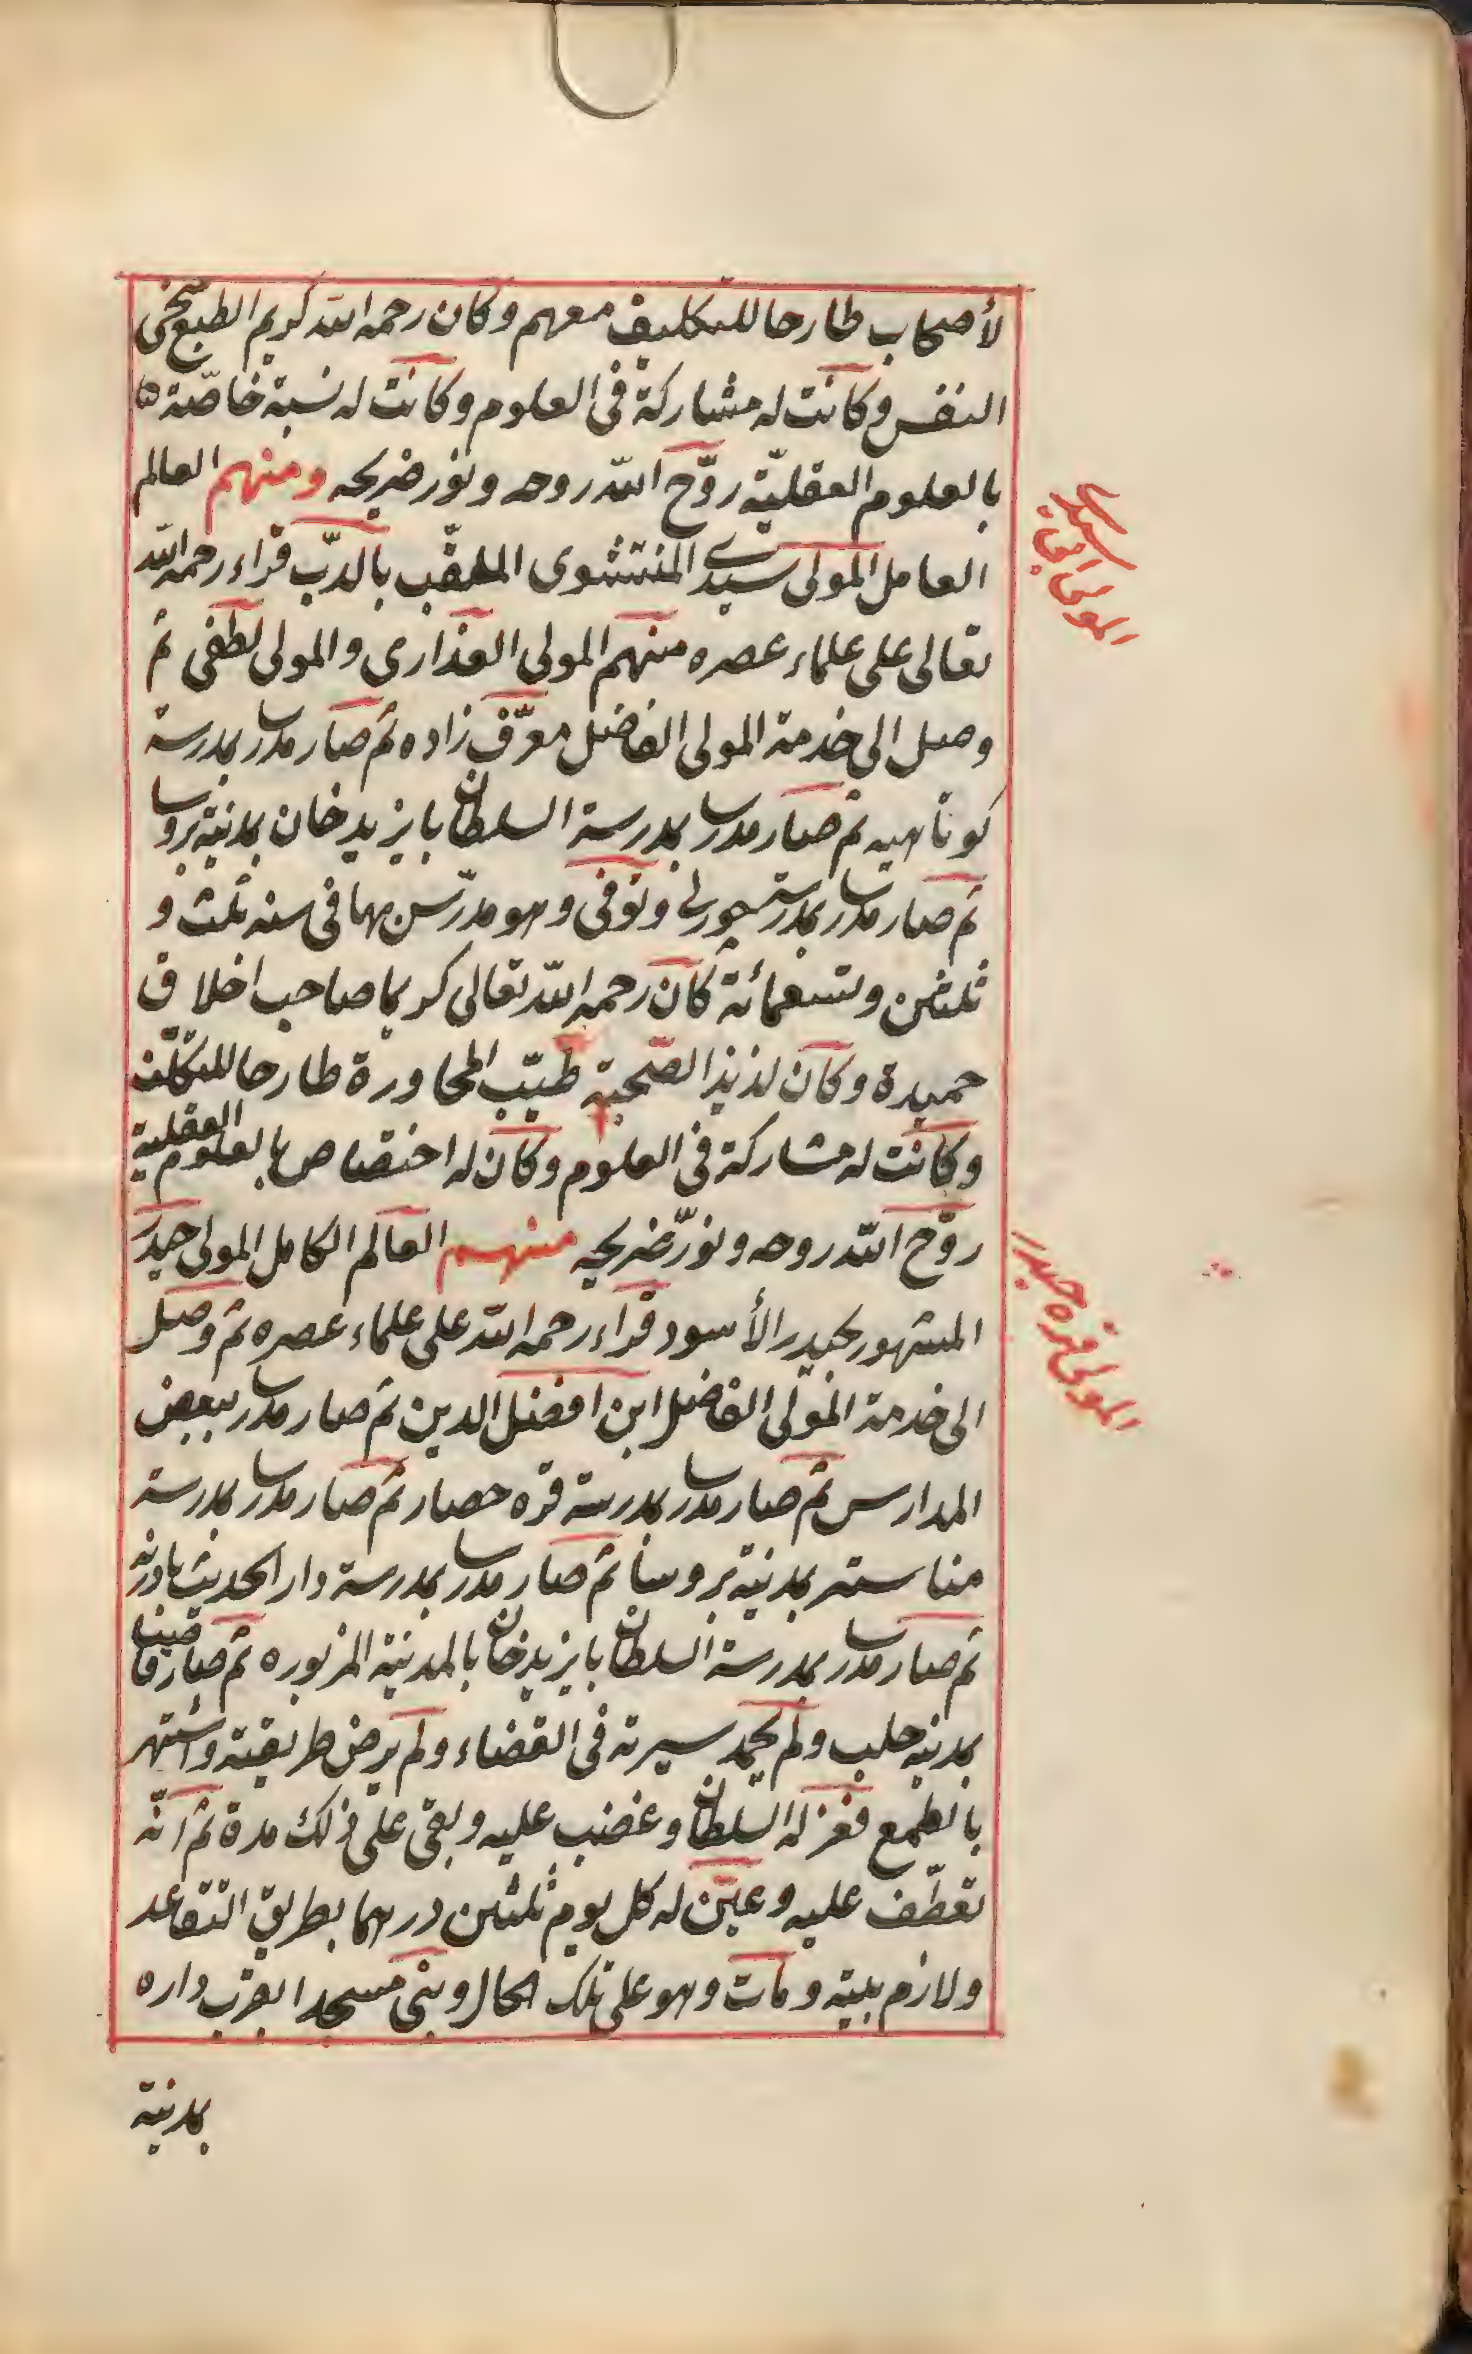 لأصحاب طارحا للتكليف معهم وكان رحمه الله كريم الطبع سخى
النفس وكانت له مشاركة فى العلوم وكانت له نسبة خاصّة
بالعلوم العقليّة روّح الله روحه ونور ضريحه ومنهم العالم
العامل المولى سيدى المنتشوى الملقّب بالدبّ قراء رحمه الله
تعالى على علماء عصره منهم المولى العذارى والمولى لطفى ثم
وصل الى خدمة المولى الفاضل معرّف زاده ثم صار مدرسا بمدرسة
كوتاهيه ثم صار مدرسا بمدرسة السلطان بايزيد خان بمدينة بروسا
ثم صار مدرسا بمدرسة چورلى وتوفى وهو مدرّس بها فى سنه ثلث و
ثلثين وتسعمائة كان رحمه الله تعالى كريما صاحب اخلاق
حميدة وكان لذيذ الصّحبة طيّب المحاورة طارحا للتكلّف
وكانت له مشاركة فى العلوم وكان له اختصاص بالعلوم العقلية
روّح الله روحه ونوّر ضريحه منهم العالم الكامل المولى حيدر
المشهور بحيدر الأسود قراء رحمه الله على علماء عصره ثم وصل
الى خدمة المولى الفاضل ابن افضل الدين ثم صار مدرسا ببعض
المدارس ثم صار مدرسا بمدرسة قره حصار ثم صار مدرسا بمدرسة
مناستر بمدينة بروسا ثم صار مدرسا بمدرسة دار الحديث بادرنه
ثم صار مدرسا بمدرسة السلطان بايزيد خان بالمدينة المزبوره ثم صار قاضيا
بمدينه حلب ولم يحمد سيرته فى القضاء ولم يرض طريقته واشتهر
بالطمع فعزله السلطان وغضب عليه وبقى على ذلك مدة ثم انّه
تعطّف عليه وعيّن له كل يوم ثلثين درهما بطريق التقاعد
ولازم بيته ومات وهو على تلك الحال وبنى مسجدا بقرب داره
بمدينة
سيدى
المولى
المولى قره حيدر